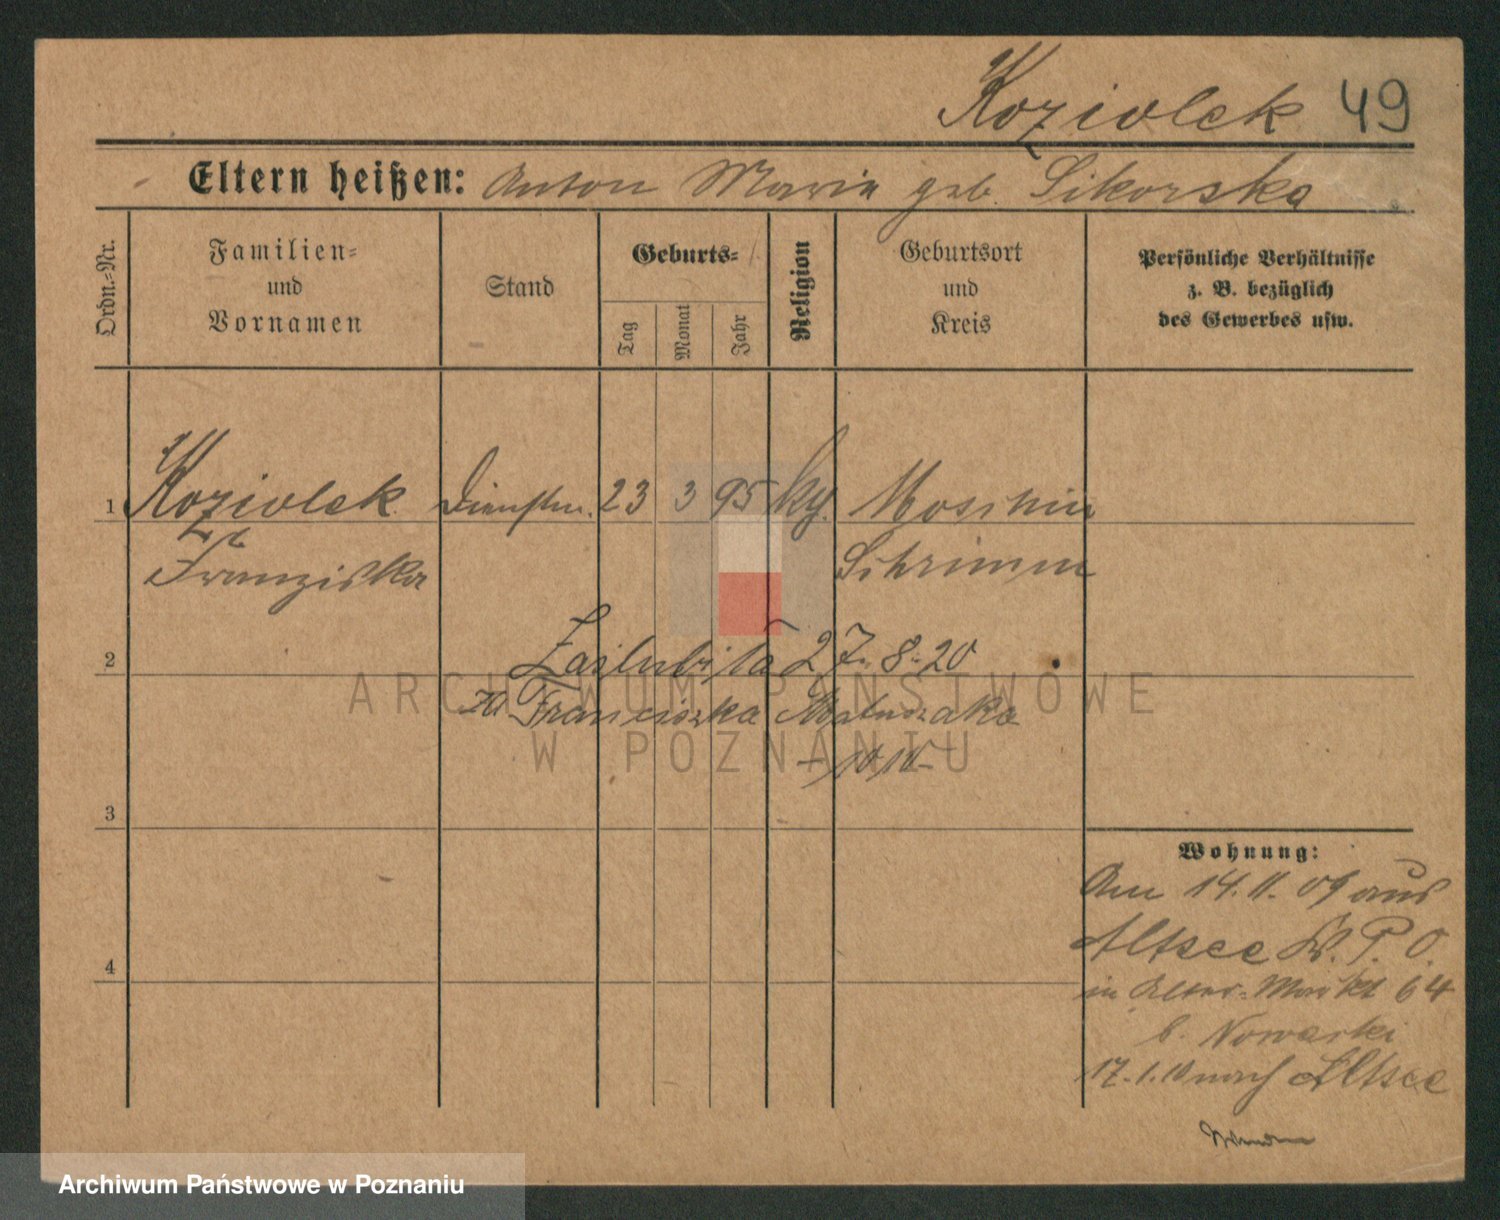 Koziolek 49
Eltern heißen: Anton Marie geb. Sikorska
Ordn.-Nr.
Familien-
und
Vornamen
Stand
Geburts-
Tag
Monat
Jahr
Religion
Geburtsort
und
Kreis
Persönliche Verhältnisse
z. B. bezüglich
des Gewerbes usw.
1 Koziolek Dienstm. 23 3 95 Moschin
Franziska Schrimm
2 Zaślubiła 27. 8. 20
za Franciszka
3
4
ARCHIWUM PAŃSTWOWE
W POZNANIU
Wohnung:
Am 14. 11. 09 aus
Altsee P. O.
in Alter-Markt 64
b. Nowacki
17. 1. 10 nach Altsee
Archiwum Państwowe w Poznaniu